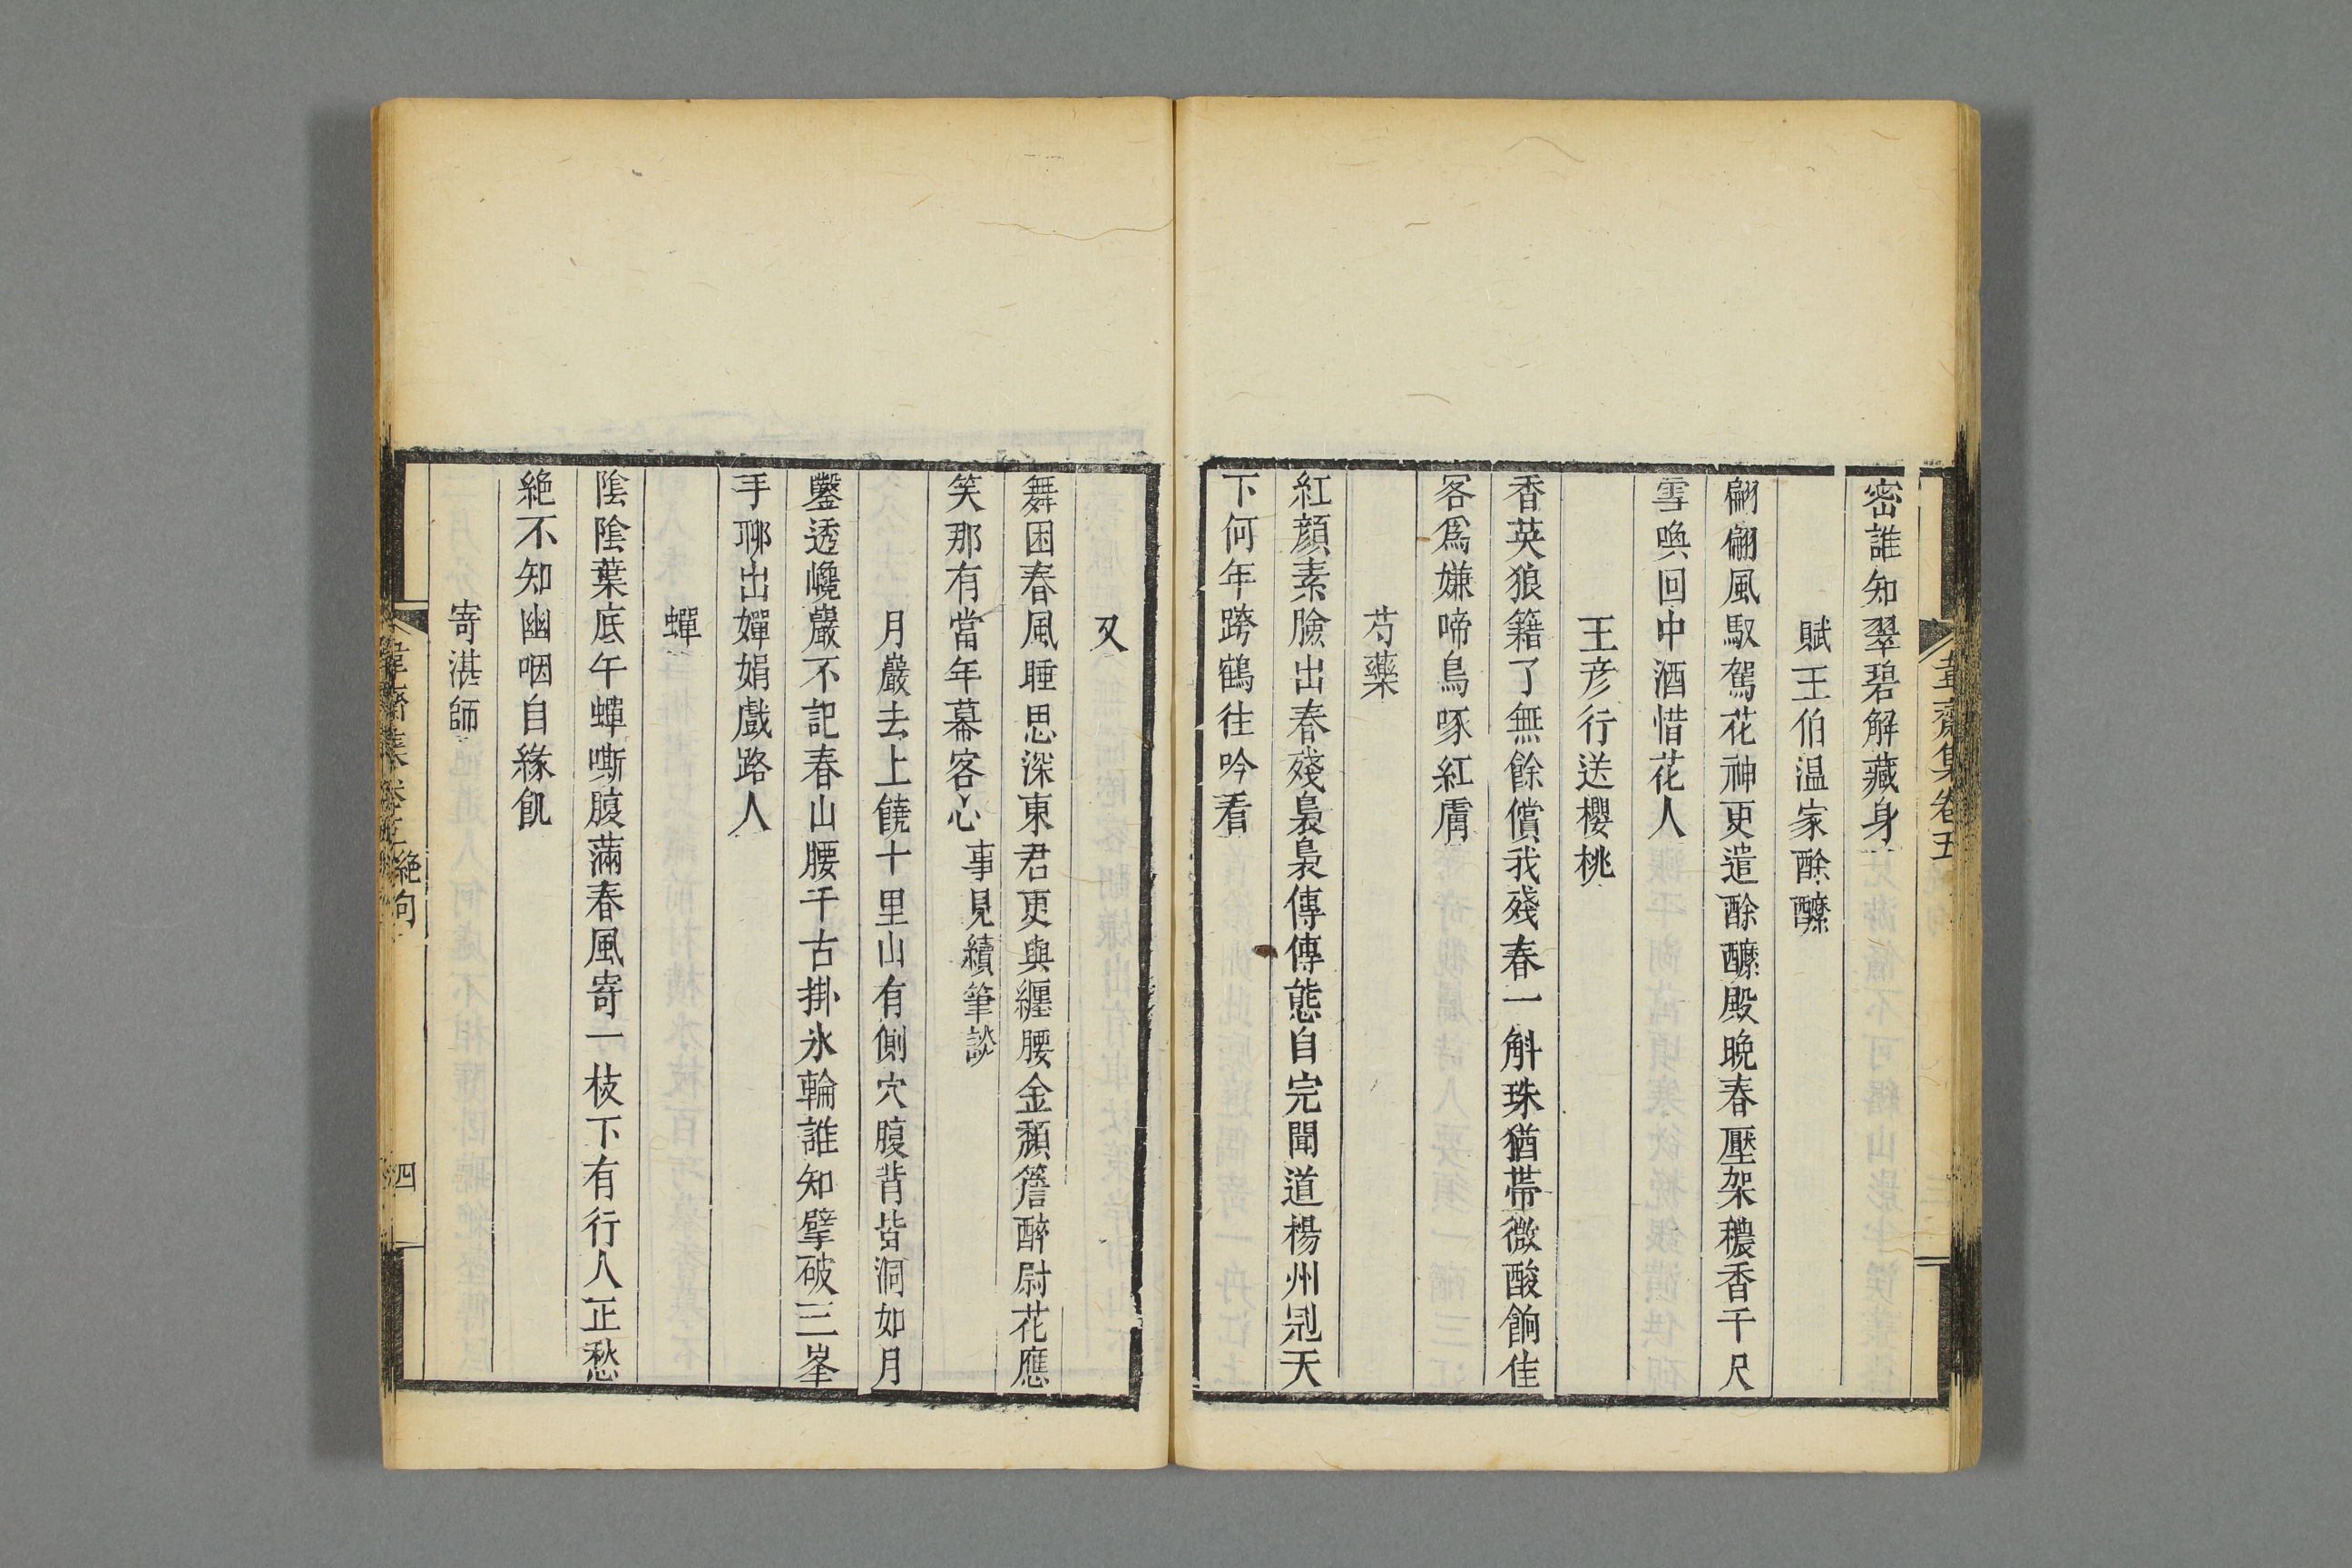 韋齋集卷五
密誰知翠碧解藏身
賦王伯温家酴醾
翩翩風馭駕花神更遣酴醾殿晚春壓架穠香千尺
雪喚回中酒惜花人
王彦行送櫻桃
香英狼籍了無餘償我殘春一斛珠猶帯微酸餉佳
客爲嫌啼鳥啄紅膚
芍藥
紅顏素臉出春殘裊裊傳傳態自完聞道楊州剧天
下何年跨鶴往吟看
又
舞困春風睡思深東君更與纒腰金頹簷醉尉花應
笑那有當年幕客心事見續筆談
月巖去上饒十里山有側穴腹背皆洞如月
鑿透巉巖不記春山腰千古掛氷輪誰知擘破三峯
手聊出嬋娟戲路人
蟬
陰陰葉底午蟬嘶腹滿春風寄一枝下有行人正愁
絶不知幽咽自緣飢
寄湛師
韋齋集卷五
絶句
四